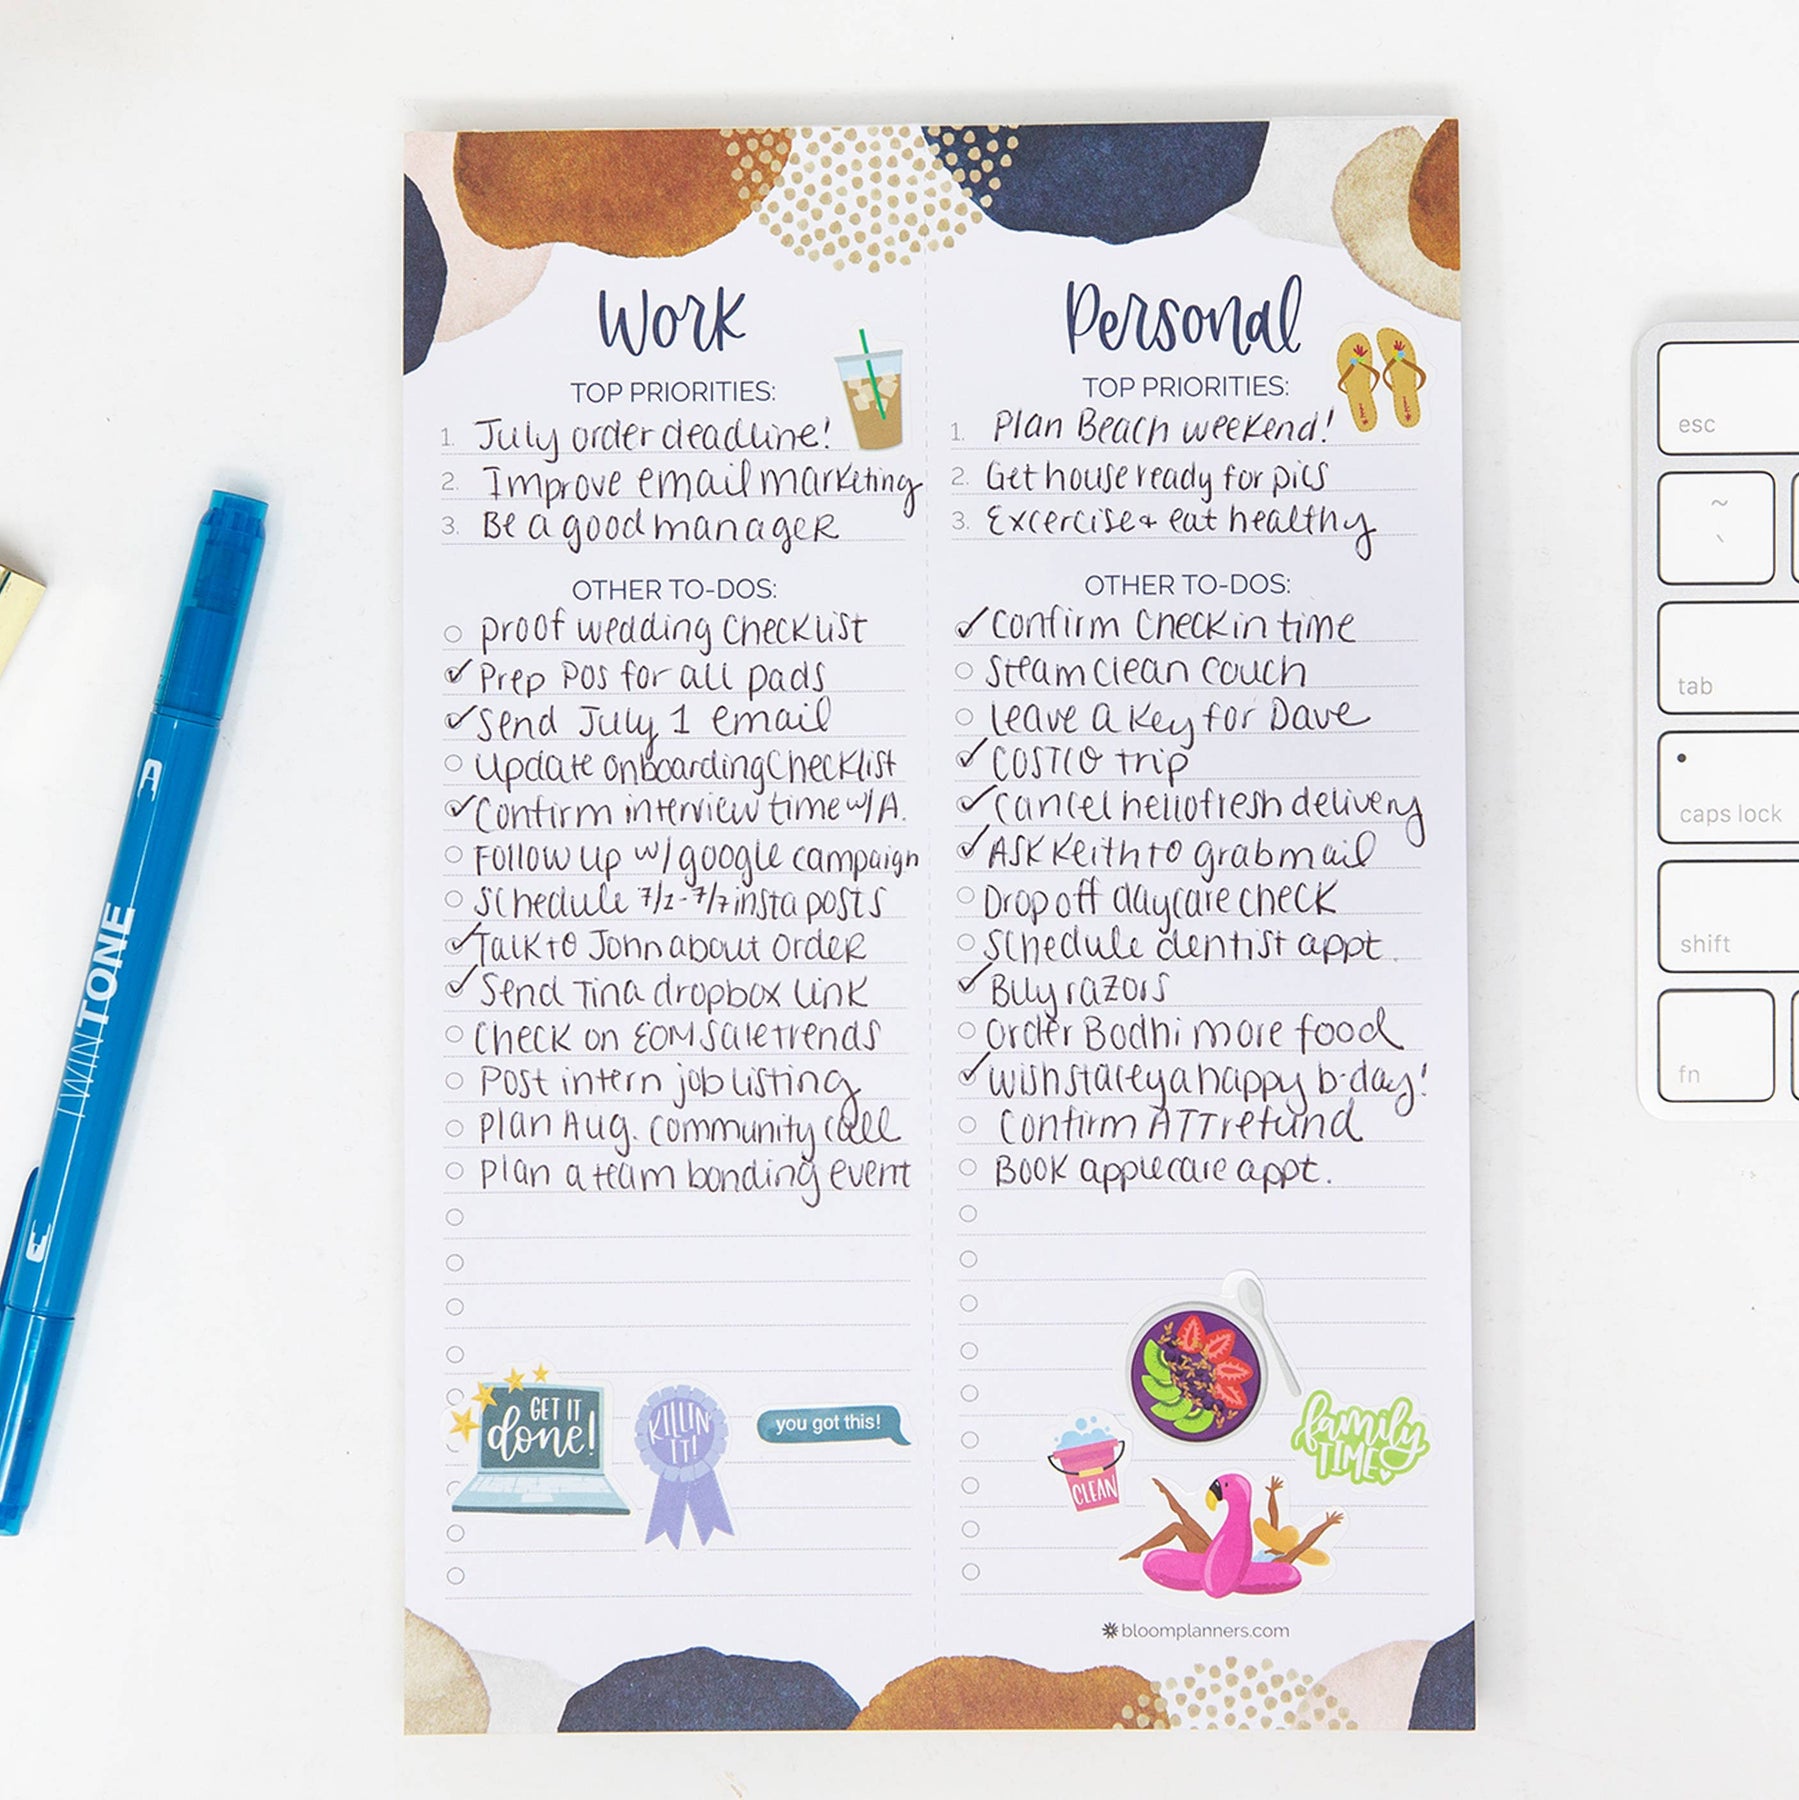 Work
TOP PRIORITIES:
1. July order deadline!
2. Improve email marketing
3. Be a good manager
OTHER TO-DOS:
proof wedding checklist
Prep POs for all pads
Send July 1 email
update onboarding checklist
Confirm interview time w/ A.
Follow up w/ google campaign
Schedule 7/1-7/7 insta posts
Talk to John about order
Send Tina dropbox link
Check on EOM sale trends
Post intern job listing
Plan Aug. community call
Plan a team bonding event
GET IT
done!
KILLIN'
IT!
you got this!
Personal
TOP PRIORITIES:
1. Plan Beach weekend!
2. Get house ready for pics
3. Excercise + eat healthy
OTHER TO-DOS:
Confirm check in time
Steam clean couch
leave a key for Dave
COSTCO trip
cancel hellofresh delivery
Ask Keith to grab mail
Drop off daycare check
Schedule dentist appt.
Buy razors
order Bodhi more food
wish stacey a happy b-day!
Confirm ATT refund
Book applecare appt.
CLEAN
family
TIME
bloomplanners.com
TWINTONE
esc
~
`
tab
caps lock
shift
fn